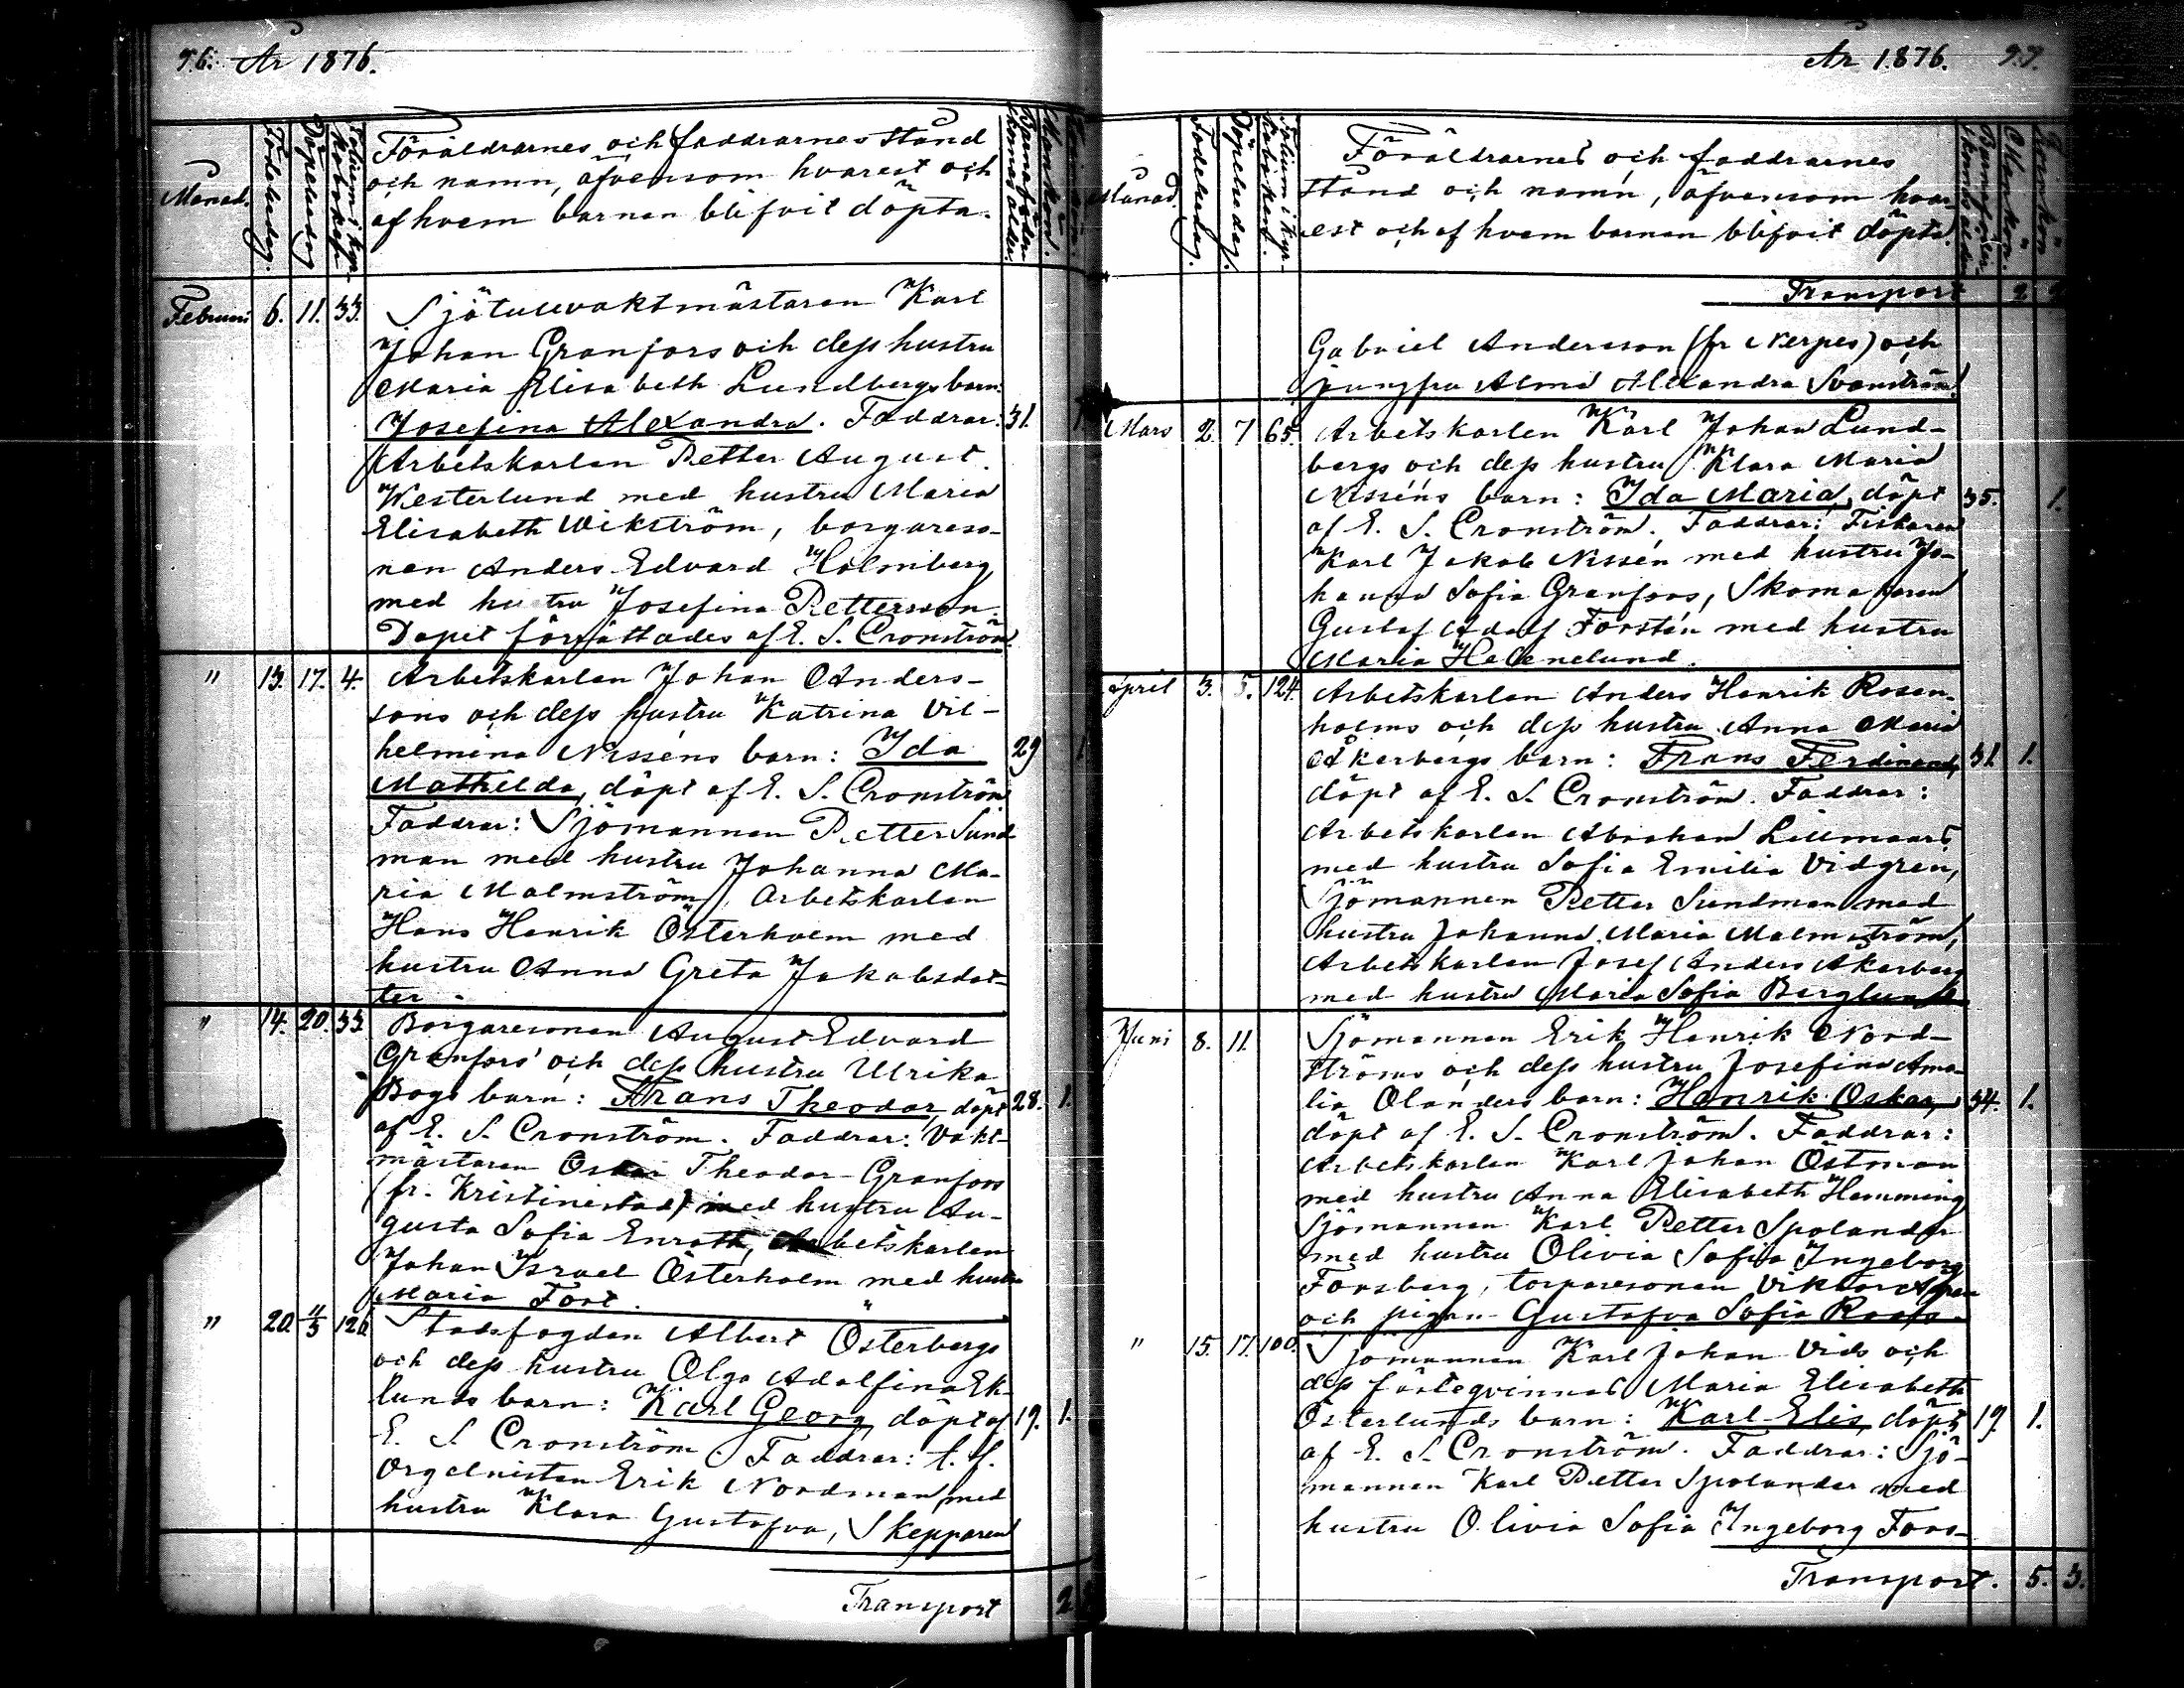 96. År 1876.
Månad.
Födelsedag.
Döpelsedag
Folium i kyr-
koboken.
Föräldrarnes och faddrarnes stånd
och namn, äfvensom hvarest och
af hvem barnen blifvit döpta.
Barnaföder-
skans ålder.
Mankön.
Februari 6. 11. 33. Sjötullvaktmästaren Karl
Johan Granfors och dess hustru
Maria Elisabeth Lundbergs barn:
Josefina Alexandra. Faddrar: 31. 1
Arbetskarlen Petter August
Westerlund med hustru Maria
Elisabeth Wikström, borgareso-
nen Anders Edvard Holmberg
med hustru Josefina Pettersson.
Dopet förrättades af E. S. Cronström
" 13. 17. 4. Arbetskarlen Johan Anders-
sons och dess hustru Katrina Vil-
helmina Nisséns barn: Ida 29 1
Mathilda, döpt af E. S. Cronström
Faddrar: Sjömannen Petter Sund
man med hustru Johanna Ma-
ria Malmström, Arbetskarlen
Hans Henrik Österholm med
hustru Anna Greta Jakobsdot-
ter.
" 14. 20. 33. Borgaresonen August Edvard
Granfors' och dess hustru Ulrika
Bogs barn: Frans Theodor, döpt 28. 1.
af E. S. Cronström. Faddrar: Vakt-
mästaren Oskar Theodor Granfors
(fr. Kristinestad) med hustru Au-
gusta Sofia Enroth, Arbetskarlen
Johan Israel Österholm med hustru
Maria Fort.
" 20. 4/3 120 Stadsfogden Albert Österbergs
och dess hustru Olga Adolfina Ek-
lunds barn: Karl Georg, döpt af 19. 1.
E. S. Cronström. Faddrar: t. f.
Orgelnisten Erik Nordman med
hustru Klara Gustafva, Skepparen
Transport 2
År 1876. 97.
Månad.
Födelsedag.
Döpelsedag.
Folium i kyr-
koboken.
Föräldrarnes och faddrarnes
stånd och namn, äfvensom hvar-
est och af hvem barnen blifvit döpta.
Barnaföder-
skans ålder
Mankön.
Qvinkön
Transport 2. 2.
Gabriel Andersson (fr Nerpes) och
jungfru Alma Alexandra Svanström.
Mars 2. 7 65. Arbetskarlen Karl Johan Lund-
bergs och dess hustru Klara Maria
Nisséns barn: Ida Maria, döpt 35. 1.
af E. S. Cronström. Faddrar: Fiskaren
Karl Jakob Nissén med hustru Jo-
hanna Sofia Granfors, Skomakaren
Gustaf Adolf Forstén med hustru
Maria Helenelund.
April 3. 5. 124. Arbetskarlen Anders Henrik Rosen-
holms och dess hustru Anna Maria
Åkerbergs barn: Frans Ferdinand, 31. 1.
döpt af E. S. Cronström. Faddrar:
Arbetskarlen Abraham Lillmaars
med hustru Sofia Emilia Vidgren,
Sjömannen Petter Sundman med
hustru Johanna Maria Malmström,
Arbetskarlen Josef Anders Åkerberg
med hustru Maria Sofia Berglund.
Juni 8. 11. Sjömannen Erik Henrik Nord-
ströms och dess hustru Josefina Ama-
lia Olanders barn: Henrik Oskar, 34. 1.
döpt af E. S. Cronström. Faddrar:
Arbetskarlen Karl Johan Östman
med hustru Anna Elisabeth Hemming
Sjömannen Karl Petter Spolander
med hustru Olivia Sofia Ingeborg
Forsberg, torparesonen Viktor
och pigan Gustafva Sofia Roos.
" 15. 17. 100. Sjömannen Karl Johan Vids och
dess fästeqvinnas Maria Elisabeth
Österlunds barn: Karl Elis, döpt 19. 1.
af E. S. Cronström. Faddrar: Sjö-
mannen Karl Petter Spolander med
hustru Olivia Sofia Ingeborg Fors-
Transport. 5. 3.